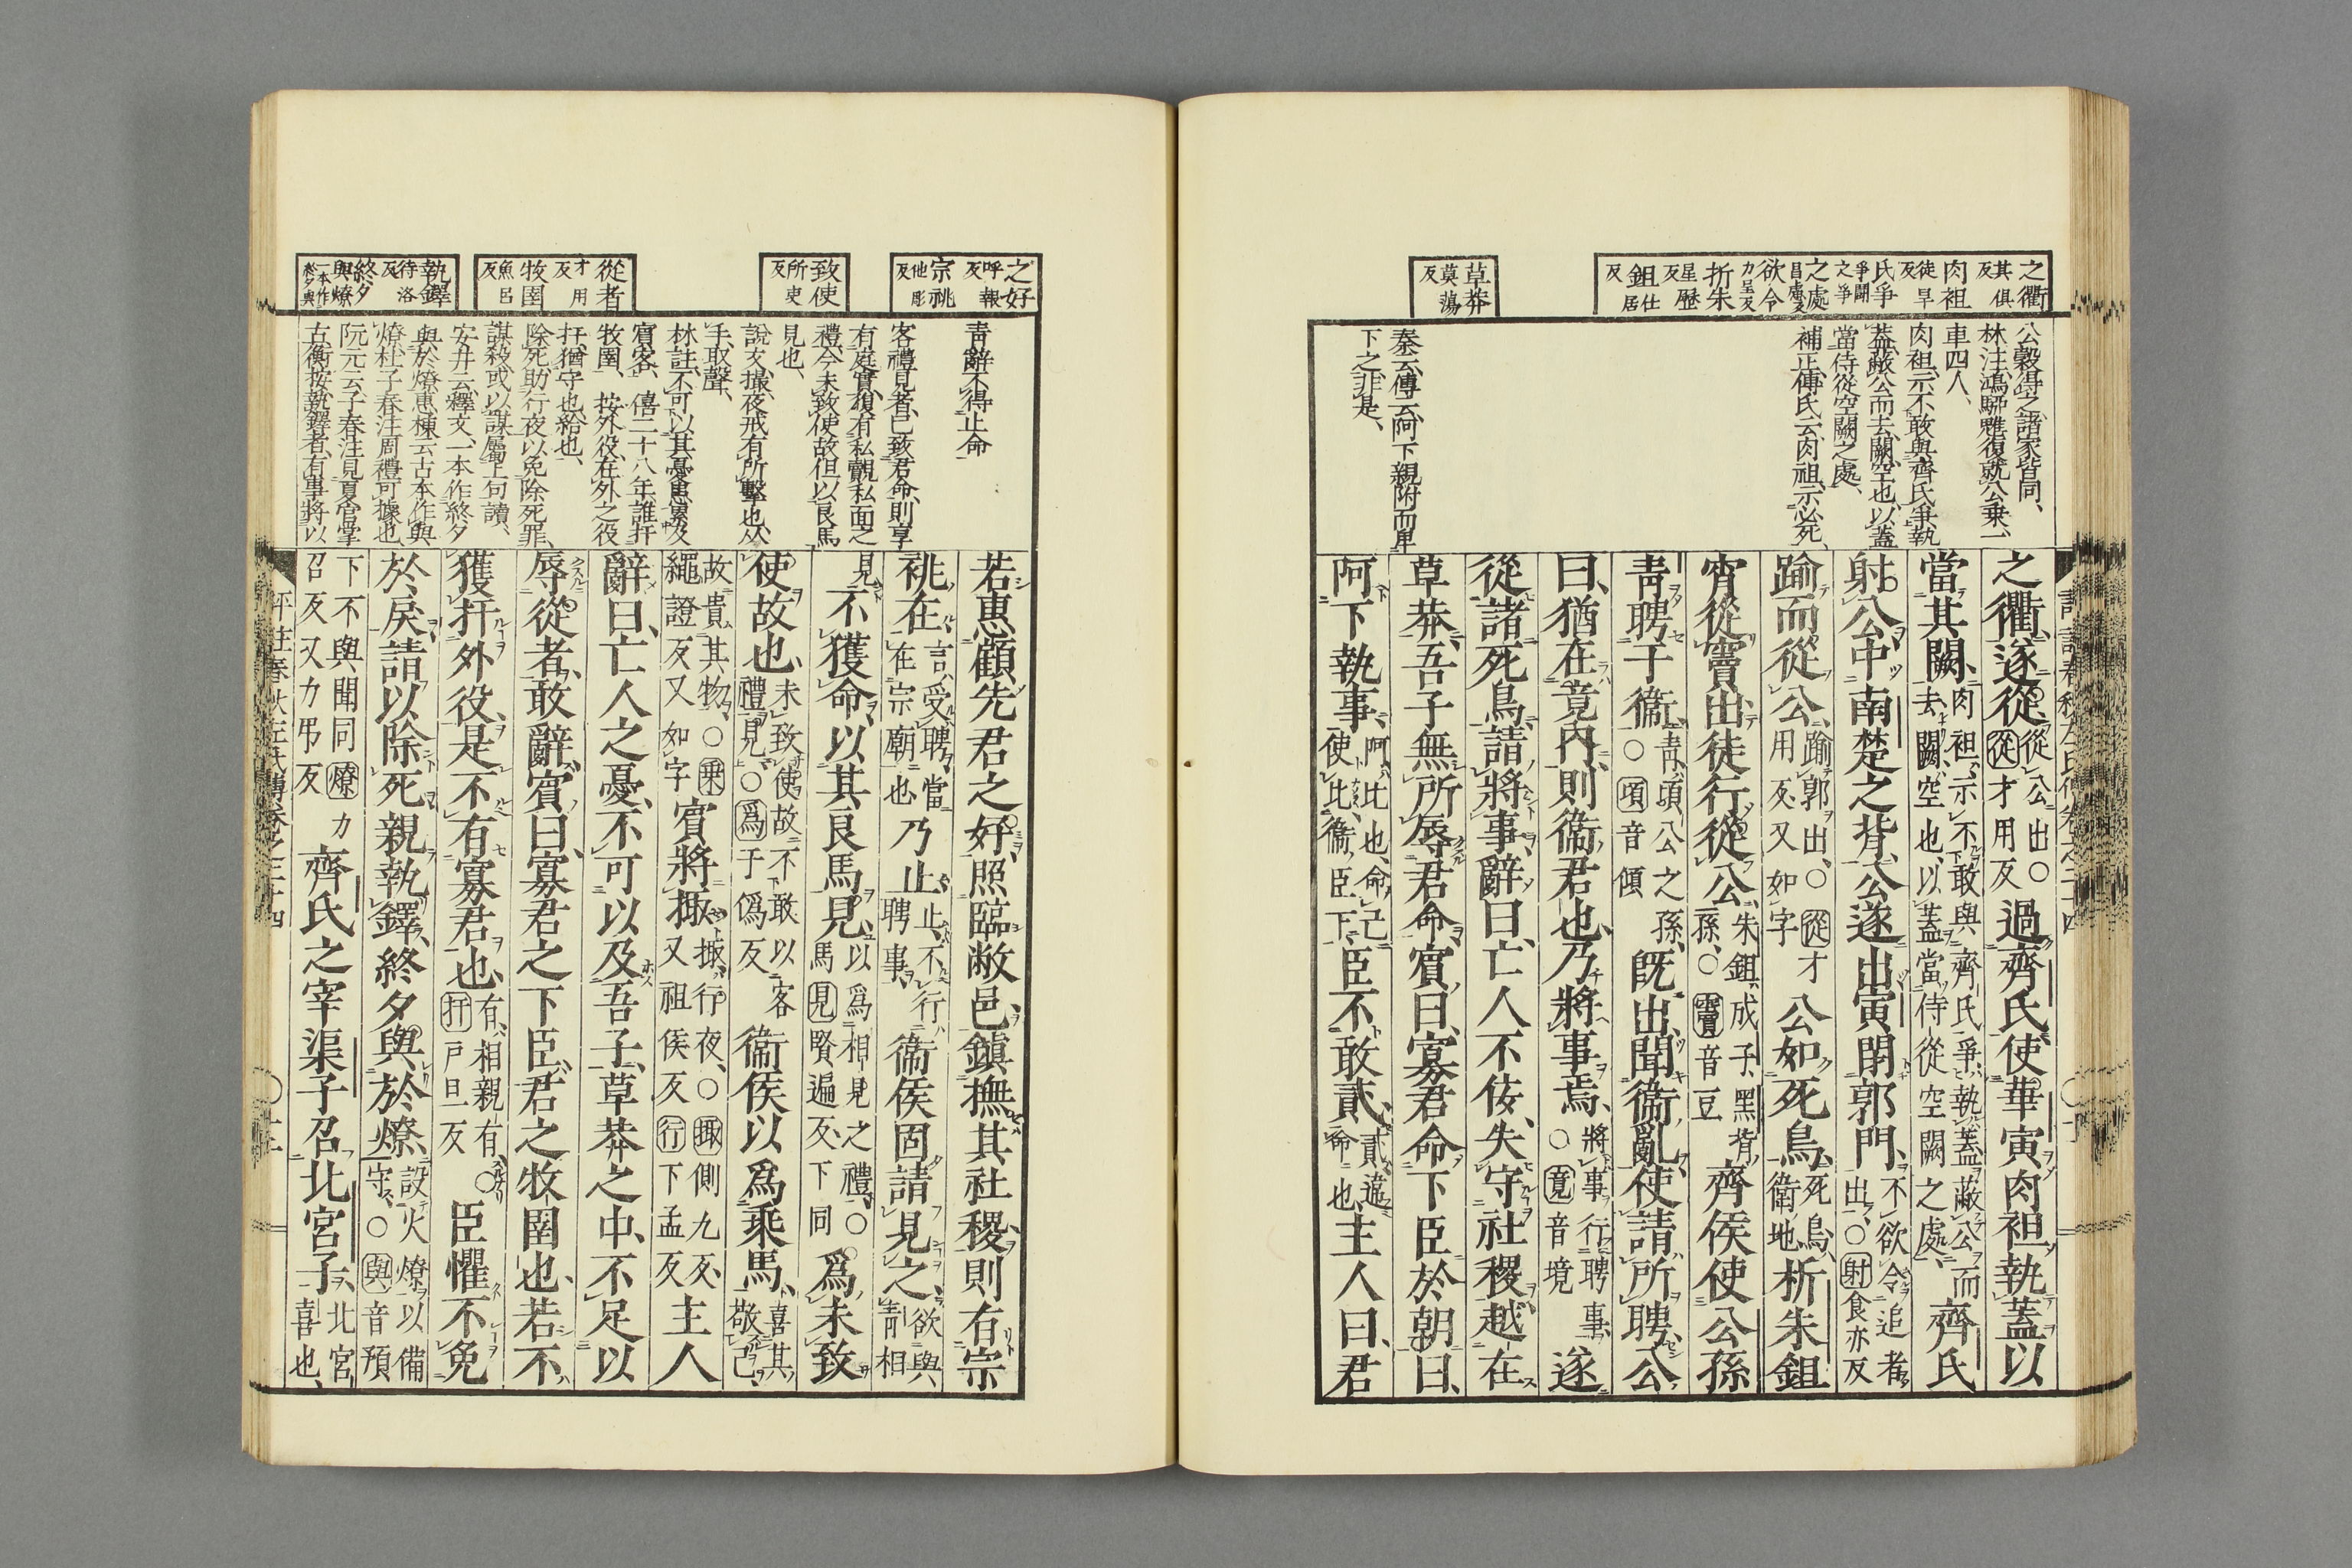 之衢 其俱反
肉袒 徒旱反
氏爭 爭鬪之爭
之處 昌慮反
欲令 力呈反
折朱 星歷反
鉏 仕居反
草莽 莫蕩反
公轂得之諸家皆同、
林注、鴻駵雖復就公乘、一
車四人、
肉袒、示不敢與齊氏爭、執
蓋、蔽公而去、闕、空也、以蓋
當侍從空闕之處、
補正、傳氏云、肉袒、示必死、
秦云、傳云、阿下、親附而卑
下之、非是、
之衢、遂從、從公出、○從才用反 過齊氏、使華寅肉袒執蓋以
當其闕、肉袒、示不敢與齊氏爭、執蓋、蔽公而去、闕、空也、以蓋當侍從空闕之處、 齊氏
射公、中南楚之背、公遂出、寅閉郭門、不欲令追者出、○射食亦反
踰而從公、踰郭出、○從才用反、又如字 公如死鳥、死鳥、衛地 析朱鉏
宵從竇出、徒行從公、朱鉏、成子、黑背孫、○竇音豆 齊侯使公孫
靑聘于衞、靑、頃公之孫、○頃音傾 既出、聞衞亂、使請所聘、公
曰、猶在竟內、則衞君也、乃將事焉、將事、行聘事、○竟音境 遂
從諸死鳥、請將事、辭曰、亡人不佞、失守社稷、越在
草莽、吾子無所辱君命、賓曰、寡君命下臣於朝曰、
阿下執事、阿、比也、命己使比衞臣下、臣不敢貳、貳、違命也、主人曰、君
之好 呼報反
宗祧 他彫反
致使 所吏反
從者 才用反
牧圉 魚呂反
執鐸 待洛反
終夕與燎 一本作終夕與
靑辭不得止命
客禮見者、已致君命、則享
有庭實、復有私覿私面之
禮、今未致使、故但以良馬
見也、
說文、掫、夜戒有所擊也、从
手、取聲、
林註、不可以其憂患累及
賓客、僖二十八年、誰扞
牧圉、按外役、在外之役
扞、猶守也、給也、
除死、助行夜以免除死罪、
謀殺、或以謀屬上句讀、
安井云、釋文、一本作終夕
與於燎、惠棟云、古本作與
燎、杜子春注周禮可據也、
阮元云、子春注見夏官掌
古、衡按、執鐸者、有事將以
若惠顧先君之好、照臨敝邑、鎮撫其社稷、則有宗
祧在、言受聘當在宗廟也、乃止、止、不行聘事、 衞侯固請見之、欲與靑相
見、不獲命、以其良馬見、以爲相見之禮、○馬見賢遍反、下同 爲未致
使故也、未致使、故不敢以客禮見、○爲于僞反 衞侯以爲乘馬、喜其敬己、
故貴其物、○乘繩證反又如字 賓將掫、掫、行夜、○掫側九反、又祖侯反行下孟反 主人
辭曰、亡人之憂、不可以及吾子、草莽之中、不足以
辱從者、敢辭、賓曰、寡君之下臣、君之牧圉也、若不
獲扞外役、是不有寡君也、有、相親有、○扞戸旦反 臣懼不免
於戾、請以除死、親執鐸、終夕與於燎、設火燎以備守、○與音預
下不與聞同燎力召反又力弔反 齊氏之宰渠子召北宮子、北宮喜也、